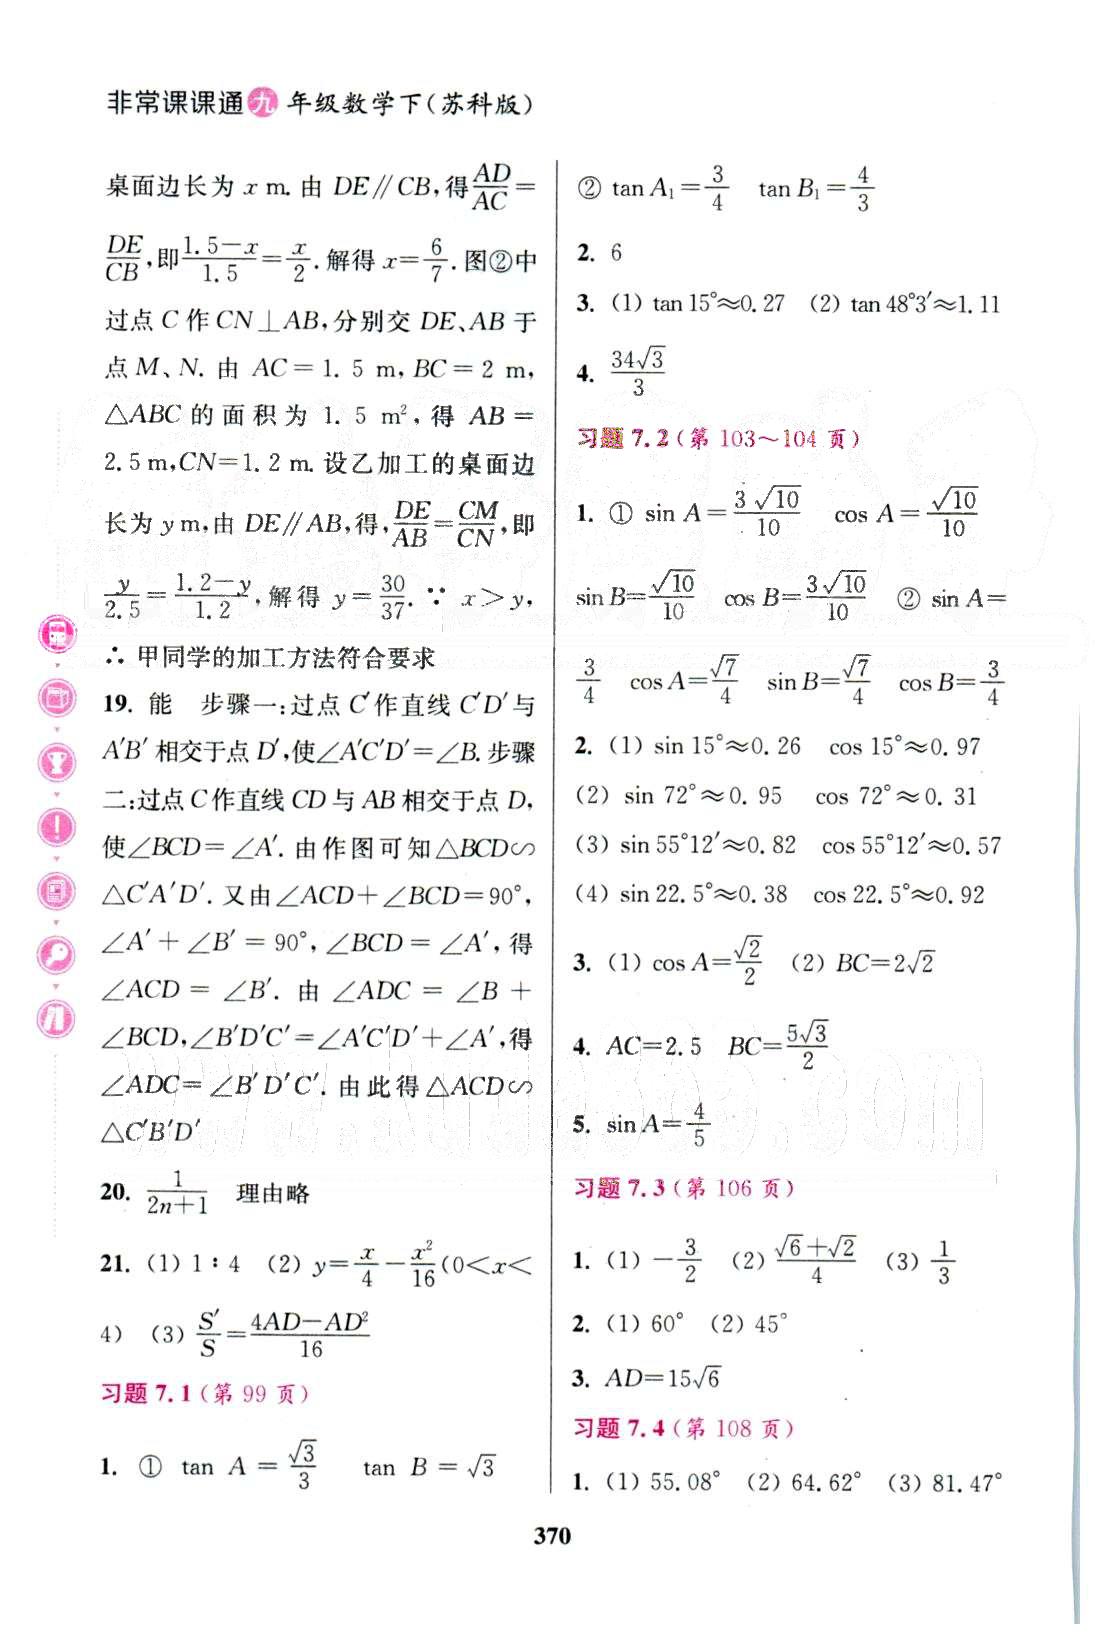 非常课课通 九 年级数学下(苏科版)
桌面边长为 x m. 由 DE∥CB,得 AD/AC =
DE/CB,即 (1.5-x)/1.5 = x/2. 解得 x = 6/7. 图②中
过点 C 作 CN⊥AB,分别交 DE、AB 于
点 M、N. 由 AC = 1.5 m, BC = 2 m,
△ABC 的面积为 1.5 m², 得 AB =
2.5 m, CN = 1.2 m. 设乙加工的桌面边
长为 y m,由 DE∥AB,得, DE/AB = CM/CN,即
y/2.5 = (1.2-y)/1.2,解得 y = 30/37. ∵ x>y,
∴ 甲同学的加工方法符合要求
19. 能 步骤一:过点 C′作直线 C′D′与
A′B′相交于点 D′,使∠A′C′D′=∠B. 步骤
二:过点 C 作直线 CD 与 AB 相交于点 D,
使∠BCD=∠A′. 由作图可知△BCD∽
△C′A′D′. 又由∠ACD+∠BCD=90°,
∠A′+∠B′=90°,∠BCD=∠A′,得
∠ACD = ∠B′. 由 ∠ADC = ∠B +
∠BCD,∠B′D′C′=∠A′C′D′+∠A′,得
∠ADC=∠B′D′C′. 由此得△ACD∽
△C′B′D′
20. 1/(2n+1) 理由略
21. (1) 1∶4 (2) y = x/4 - x²/16 (0<x<
4) (3) S′/S = (4AD-AD²)/16
习题 7.1(第 99 页)
1. ① tan A = √3/3 tan B = √3
② tan A₁ = 3/4 tan B₁ = 4/3
2. 6
3. (1) tan 15°≈0.27 (2) tan 48°3′≈1.11
4. 34√3/3
习题 7.2(第 103~104 页)
1. ① sin A = 3√10/10 cos A = √10/10
sin B = √10/10 cos B = 3√10/10 ② sin A =
3/4 cos A = √7/4 sin B = √7/4 cos B = 3/4
2. (1) sin 15°≈0.26 cos 15°≈0.97
(2) sin 72°≈0.95 cos 72°≈0.31
(3) sin 55°12′≈0.82 cos 55°12′≈0.57
(4) sin 22.5°≈0.38 cos 22.5°≈0.92
3. (1) cos A = √2/2 (2) BC = 2√2
4. AC = 2.5 BC = 5√3/2
5. sin A = 4/5
习题 7.3(第 106 页)
1. (1) -3/2 (2) (√6+√2)/4 (3) 1/3
2. (1) 60° (2) 45°
3. AD = 15√6
习题 7.4(第 108 页)
1. (1) 55.08° (2) 64.62° (3) 81.47°
370